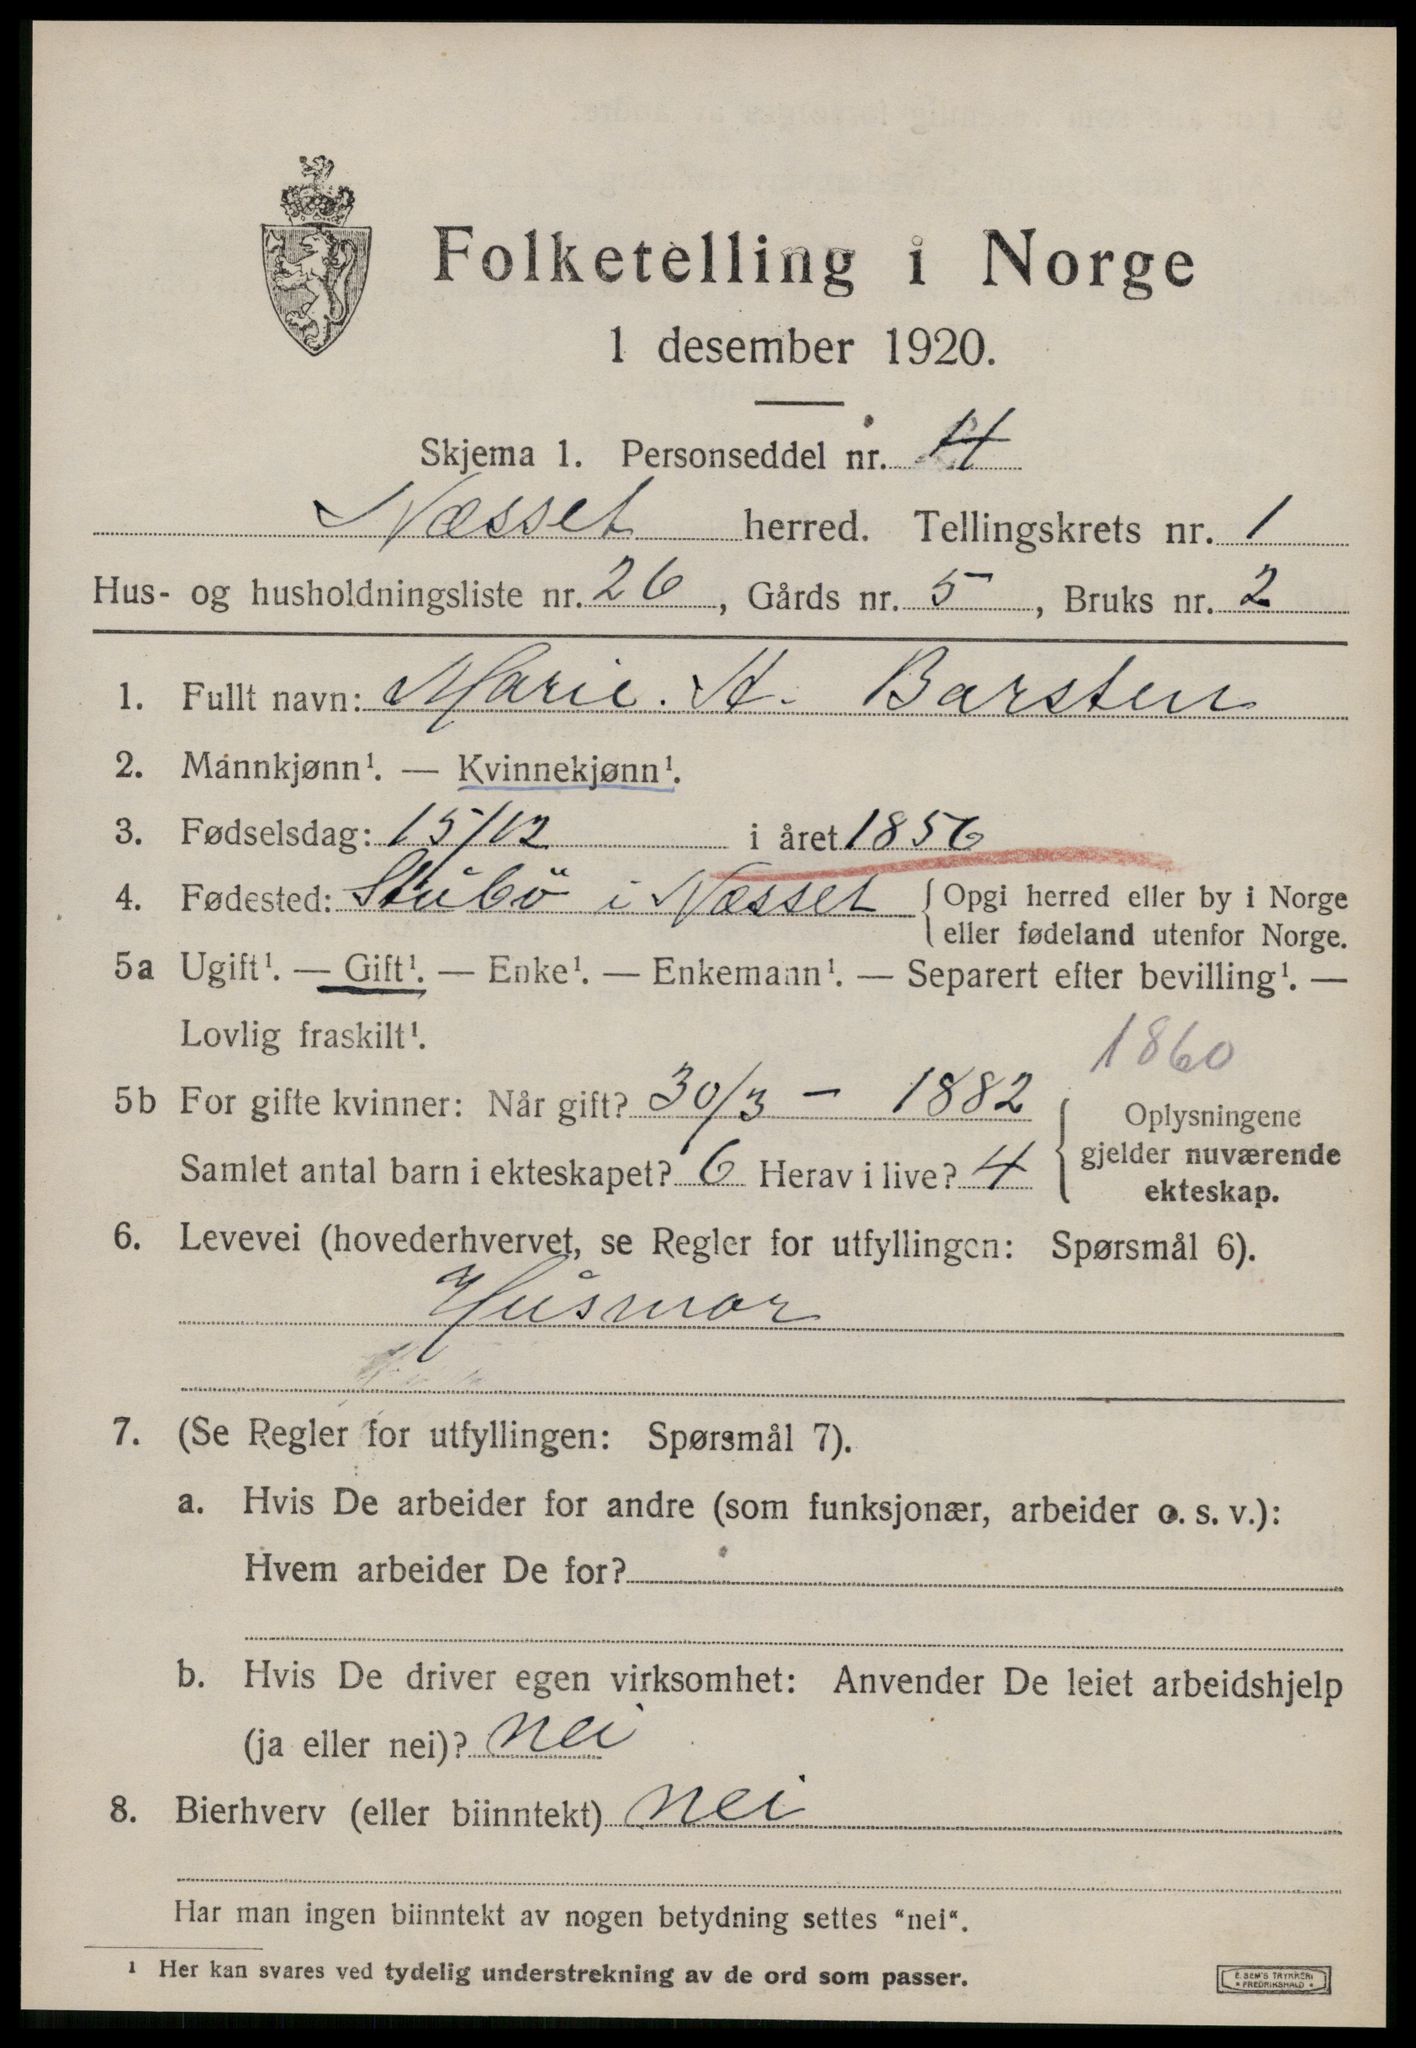 Folketelling i Norge
1 desember 1920.
Skjema 1. Personseddel nr. 4
Næsset herred. Tellingskrets nr. 1
Hus- og husholdningsliste nr. 26, Gårds nr. 5, Bruks nr. 2
1. Fullt navn: Marie. A. Barsten
2. Mannkjønn¹. — Kvinnekjønn¹.
3. Fødselsdag: 15/12 i året 1856
4. Fødested: Stubö i Næsset { Opgi herred eller by i Norge
eller fødeland utenfor Norge.
5a Ugift¹. — Gift¹. — Enke¹. — Enkemann¹. — Separert efter bevilling¹. —
Lovlig fraskilt¹.
1860
5b For gifte kvinner: Når gift? 30/3 – 1882
Samlet antal barn i ekteskapet? 6 Herav i live? 4
{ Oplysningene
gjelder nuværende
ekteskap.
6. Levevei (hovederhvervet, se Regler for utfyllingen: Spørsmål 6).
Husmor
7. (Se Regler for utfyllingen: Spørsmål 7).
a. Hvis De arbeider for andre (som funksjonær, arbeider o. s. v.):
Hvem arbeider De for?
b. Hvis De driver egen virksomhet: Anvender De leiet arbeidshjelp
(ja eller nei)? nei
8. Bierhverv (eller biinntekt) nei
Har man ingen biinntekt av nogen betydning settes “nei“.
¹ Her kan svares ved tydelig understrekning av de ord som passer.
E. SEM'S TRYKKERI
• FREDRIKSHALD •